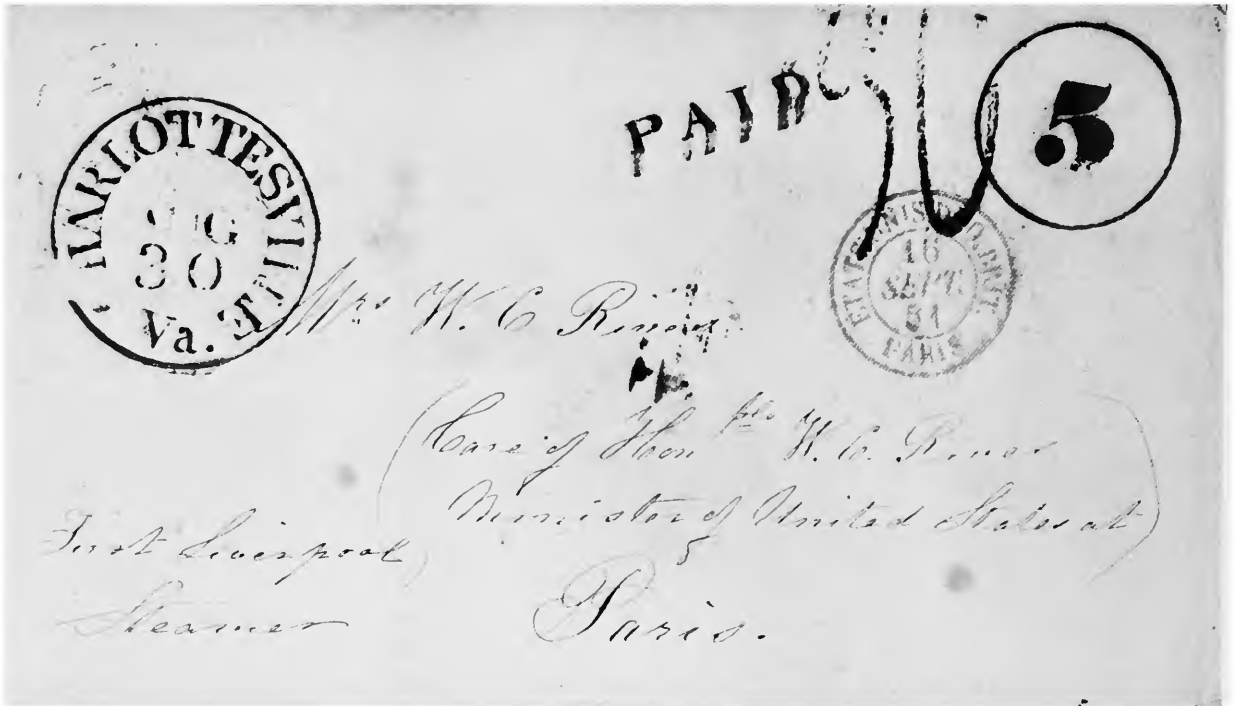 CHARLOTTESVILLE
AUG
30
Va.
PAID
5
ETATS-UNIS
16
SEPT.
51
PARIS
Mrs W. C Rives
(Care of Honble W. C. Rives
Minister of United States at)
Paris.
First Liverpool
Steamer